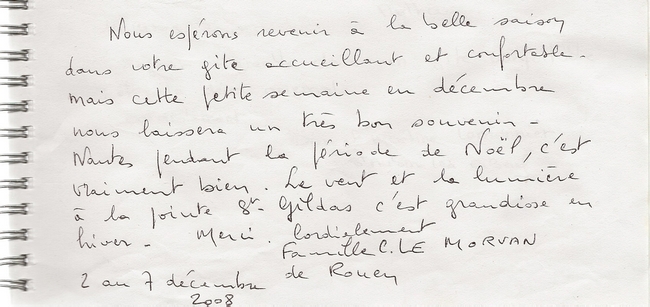 Nous espérons revenir à la belle saison
dans votre gîte accueillant et confortable.
mais cette petite semaine en décembre
nous laissera un très bon souvenir -
Nantes pendant la période de Noël, c'est
vraiment bien. Le vent et la lumière
à la pointe St- Gildas c'est grandiose en
hiver - Merci. Cordialement
Famille C. LE MORVAN
2 au 7 décembre de Rouen
2008